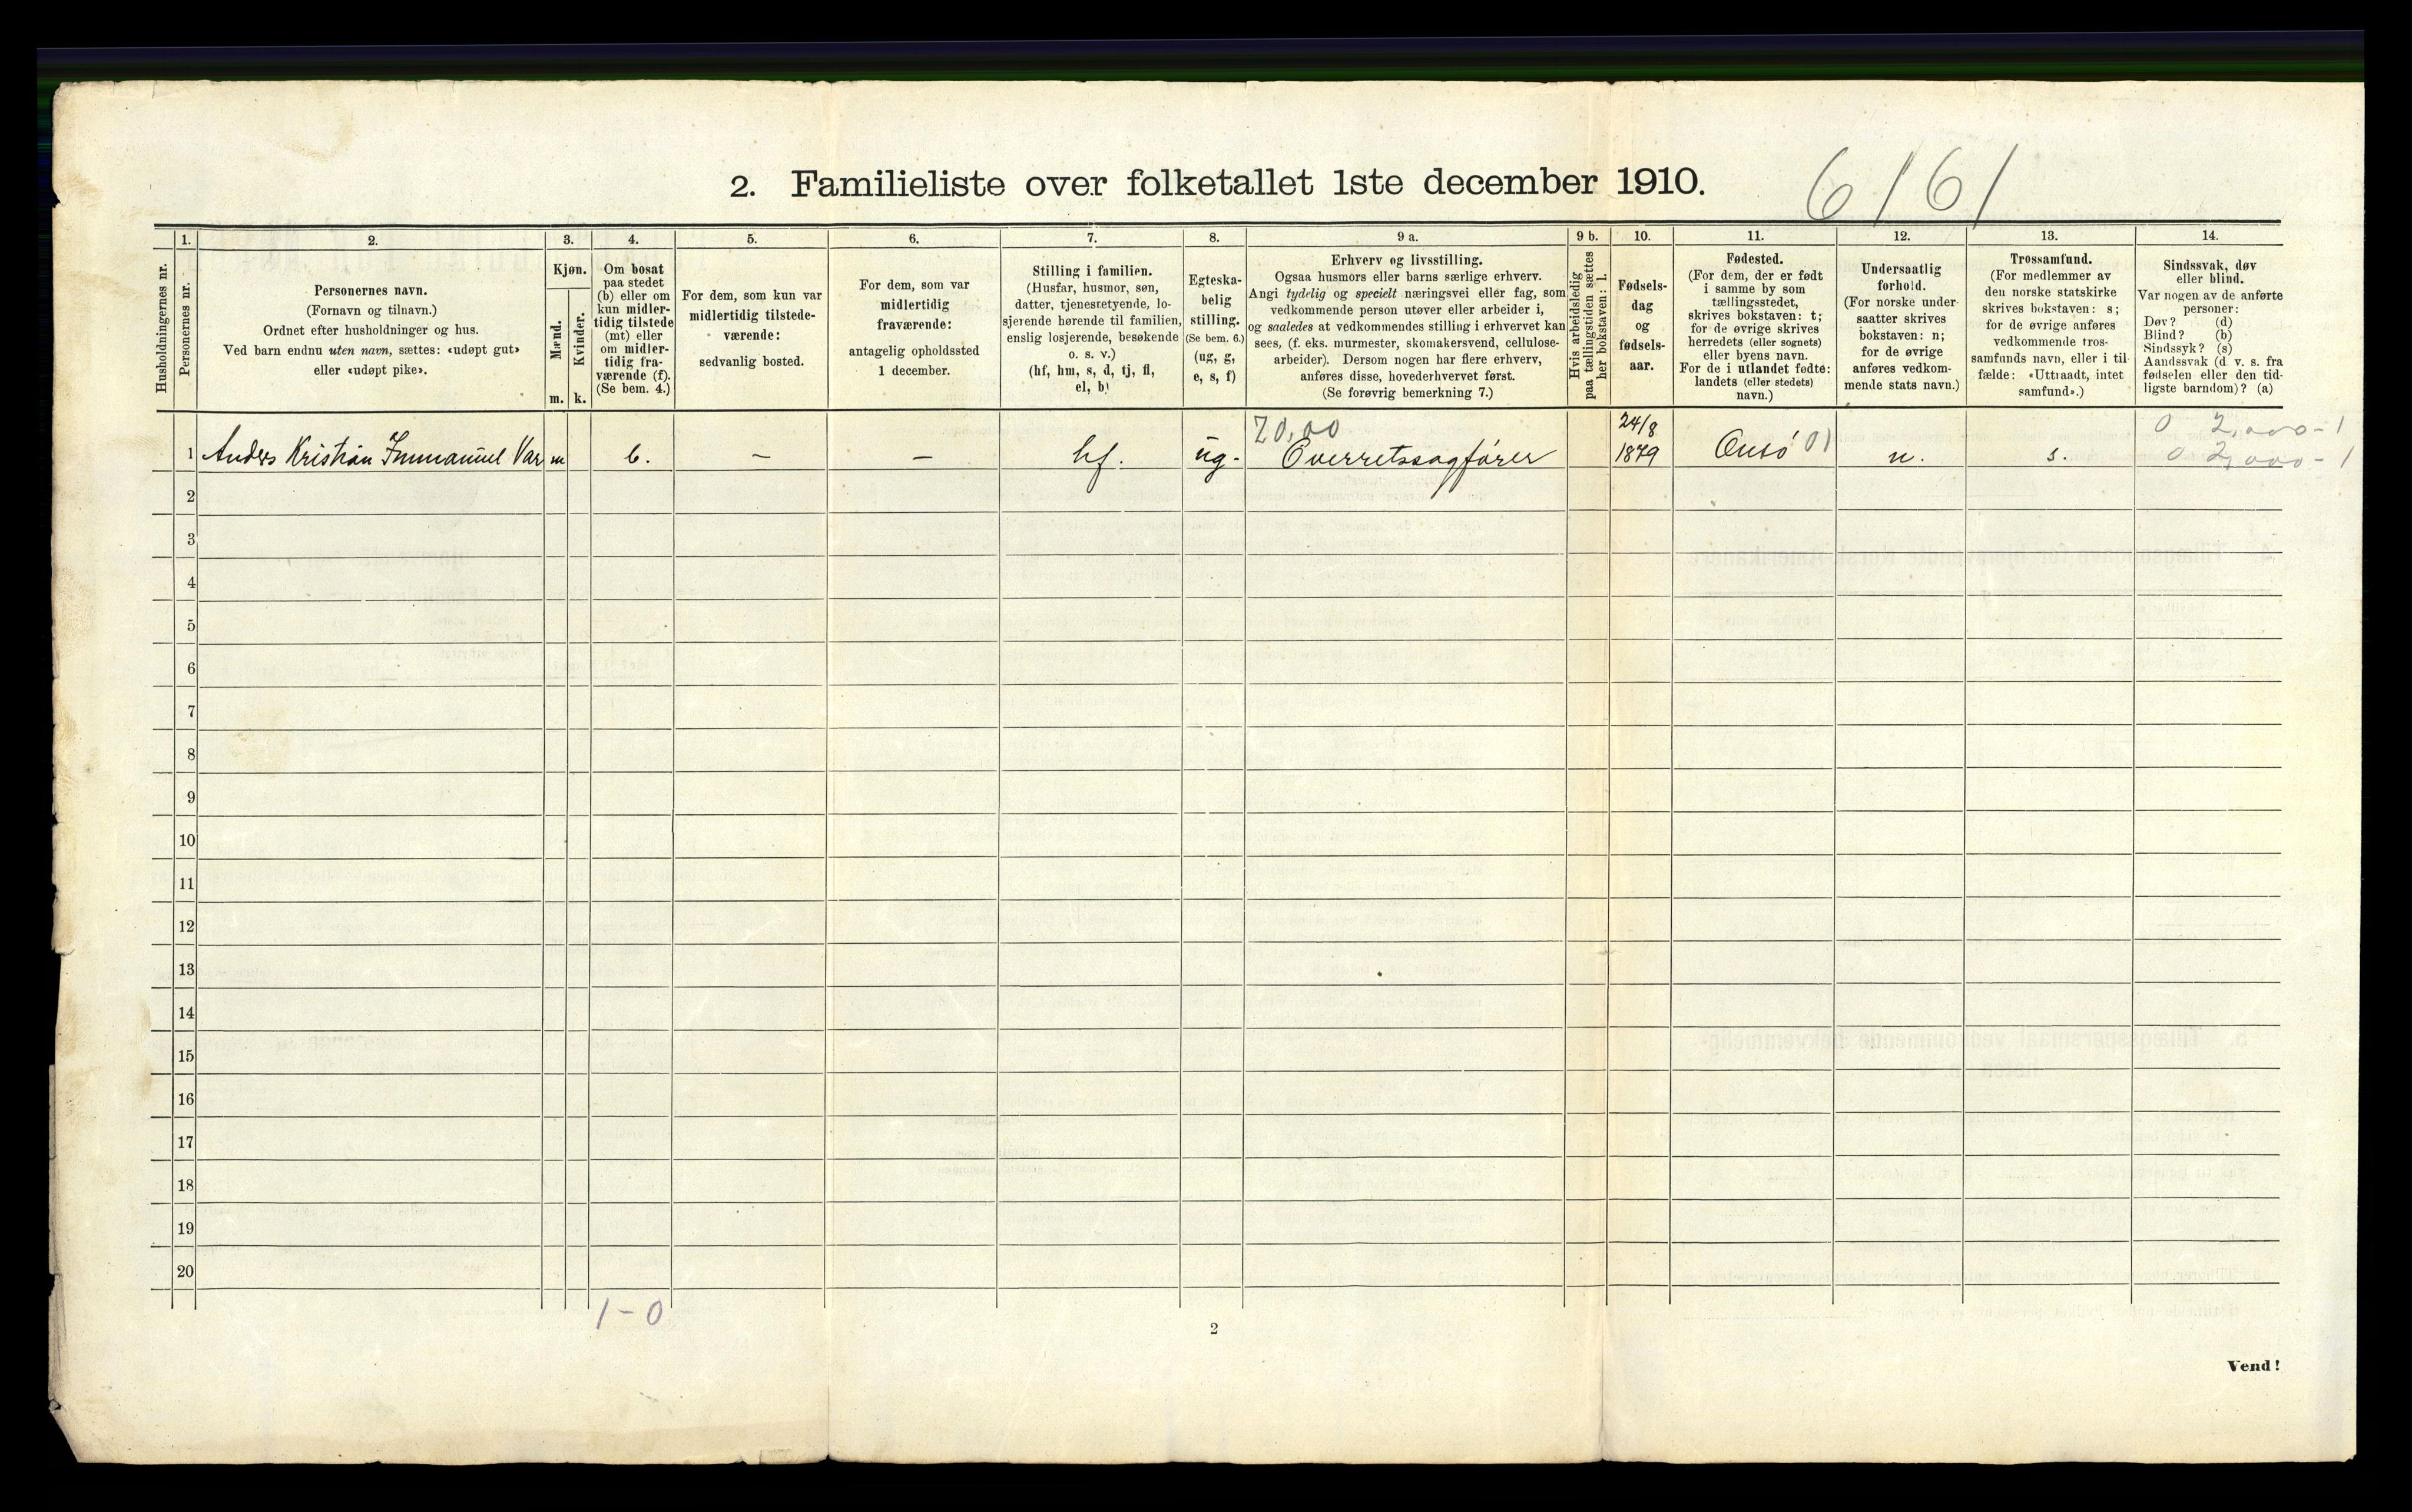 6161
2. Familieliste over folketallet 1ste december 1910.
Husholdningernes nr.
1.
Personernes nr.
2.
Personernes navn.
(Fornavn og tilnavn.)
Ordnet efter husholdninger og hus.
Ved barn endnu uten navn, sættes: «udøpt gut»
eller «udøpt pike».
3.
Kjøn.
Mænd.
m.
Kvinder.
k.
4.
Om bosat
paa stedet
(b) eller om
kun midler-
tidig tilstede
(mt) eller
om midler-
tidig fra-
værende (f).
(Se bem. 4.)
5.
For dem, som kun var
midlertidig tilstede-
værende:
sedvanlig bosted.
6.
For dem, som var
midlertidig
fraværende:
antagelig opholdssted
1 december.
7.
Stilling i familien.
(Husfar, husmor, søn,
datter, tjenestetyende, lo-
sjerende hørende til familien,
enslig losjerende, besøkende
o. s. v.)
(hf, hm, s, d, tj, fl,
el, b)
8.
Egteska-
belig
stilling.
(Se bem. 6.)
(ug, g,
e, s, f)
9 a.
Erhverv og livsstilling.
Ogsaa husmors eller barns særlige erhverv.
Angi tydelig og specielt næringsvei eller fag, som
vedkommende person utøver eller arbeider i,
og saaledes at vedkommendes stilling i erhvervet kan
sees, (f. eks. murmester, skomakersvend, cellulose-
arbeider). Dersom nogen har flere erhverv,
anføres disse, hovederhvervet først.
(Se forøvrig bemerkning 7.)
9 b.
Hvis arbeidsledig
paa tællingstiden sættes
her bokstaven: l.
10.
Fødsels-
dag
og
fødsels-
aar.
11.
Fødested.
(For dem, der er født
i samme by som
tællingsstedet,
skrives bokstaven: t;
for de øvrige skrives
herredets (eller sognets)
eller byens navn.
For de i utlandet fødte:
landets (eller stedets)
navn.)
12.
Undersaatlig
forhold.
(For norske under-
saatter skrives
bokstaven: n;
for de øvrige
anføres vedkom-
mende stats navn.)
13.
Trossamfund.
(For medlemmer av
den norske statskirke
skrives bokstaven: s;
for de øvrige anføres
vedkommende tros-
samfunds navn, eller i til-
fælde: «Uttraadt, intet
samfund».)
14.
Sindssvak, døv
eller blind.
Var nogen av de anførte
personer:
Døv? (d)
Blind? (b)
Sindssyk? (s)
Aandssvak (d. v. s. fra
fødselen eller den tid-
ligste barndom)? (a)
20,00 24/8 0 2,000-1
1 Anders Kristian Immanuel Var m b. – – hf. ug. Overretssagfører 1879 Onsø 01 n. s. 0 2,000-1
2
3
4
5
6
7
8
9
10
11
12
13
14
15
16
17
18
19
20
1-0
2
Vend!